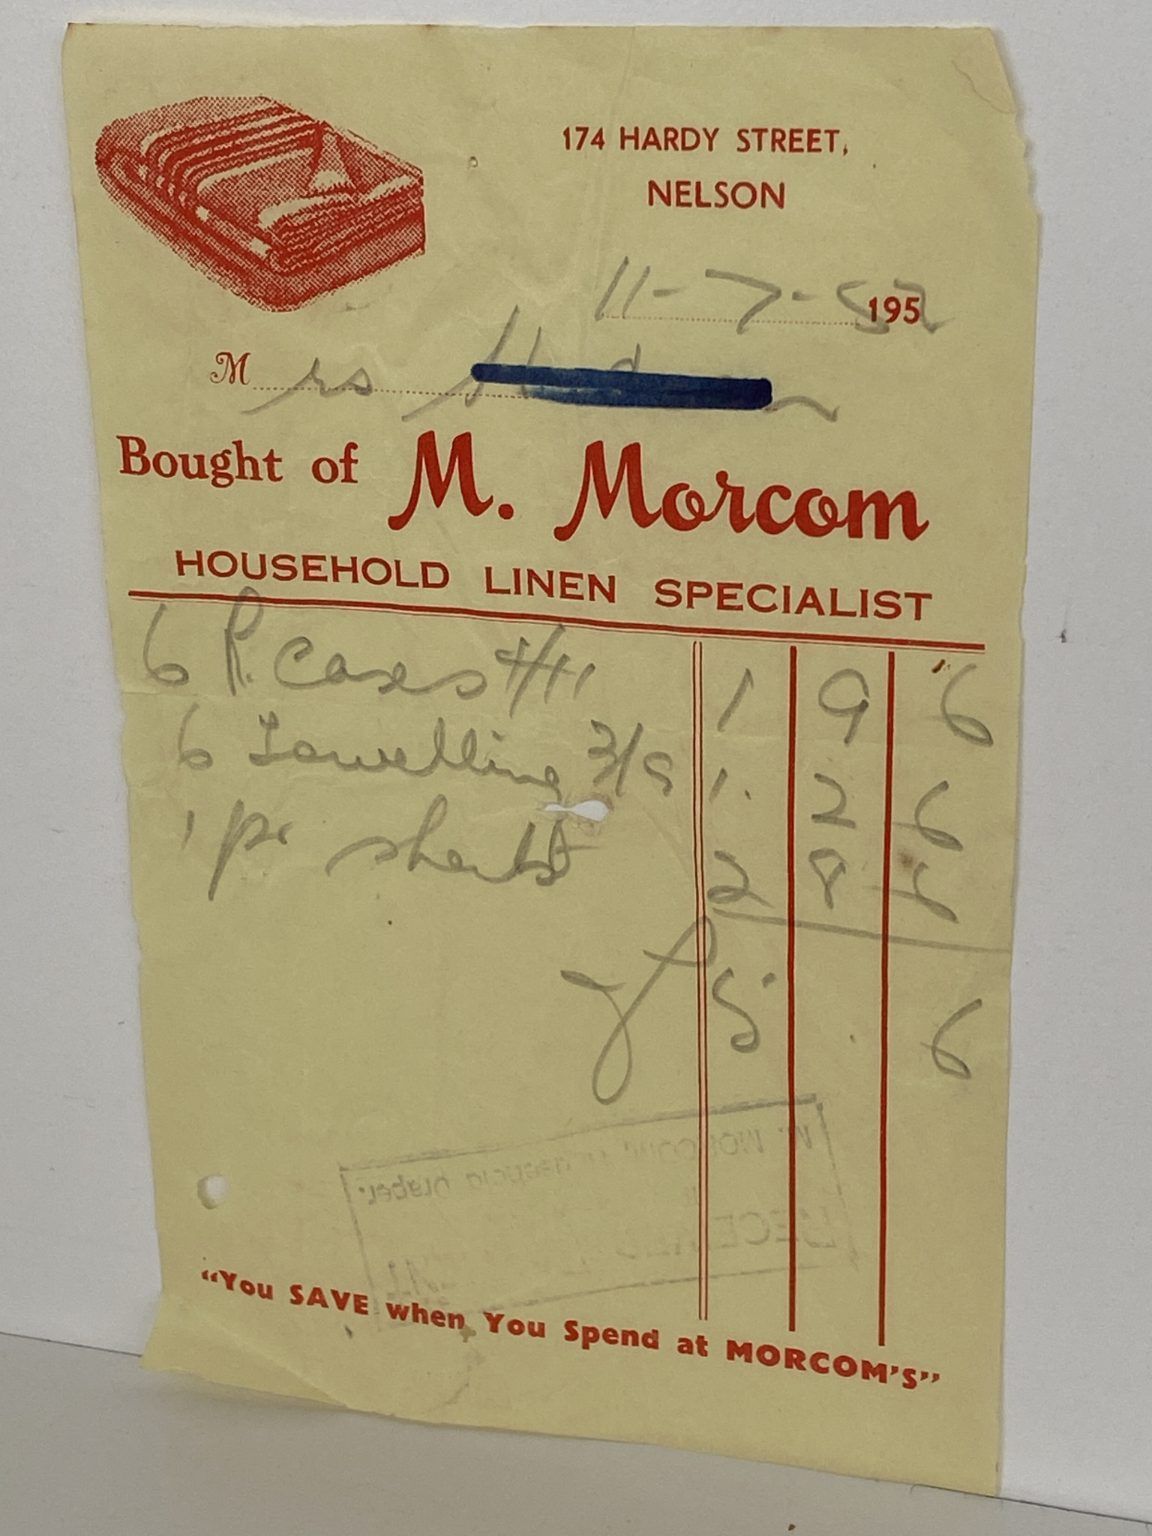 174 HARDY STREET,
NELSON
11-7-52 195
Mrs
Bought of M. Morcom
HOUSEHOLD LINEN SPECIALIST
6 P. Cases 4/11 1 9 6
6 Towelling 3/9 1. 2 6
1 pr sheets 2 8 6
£ 5 6
M. MORCOM, draper.
"You SAVE when You Spend at MORCOM'S"